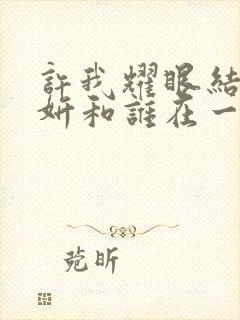 許我耀眼結
妍和誰在一
昕